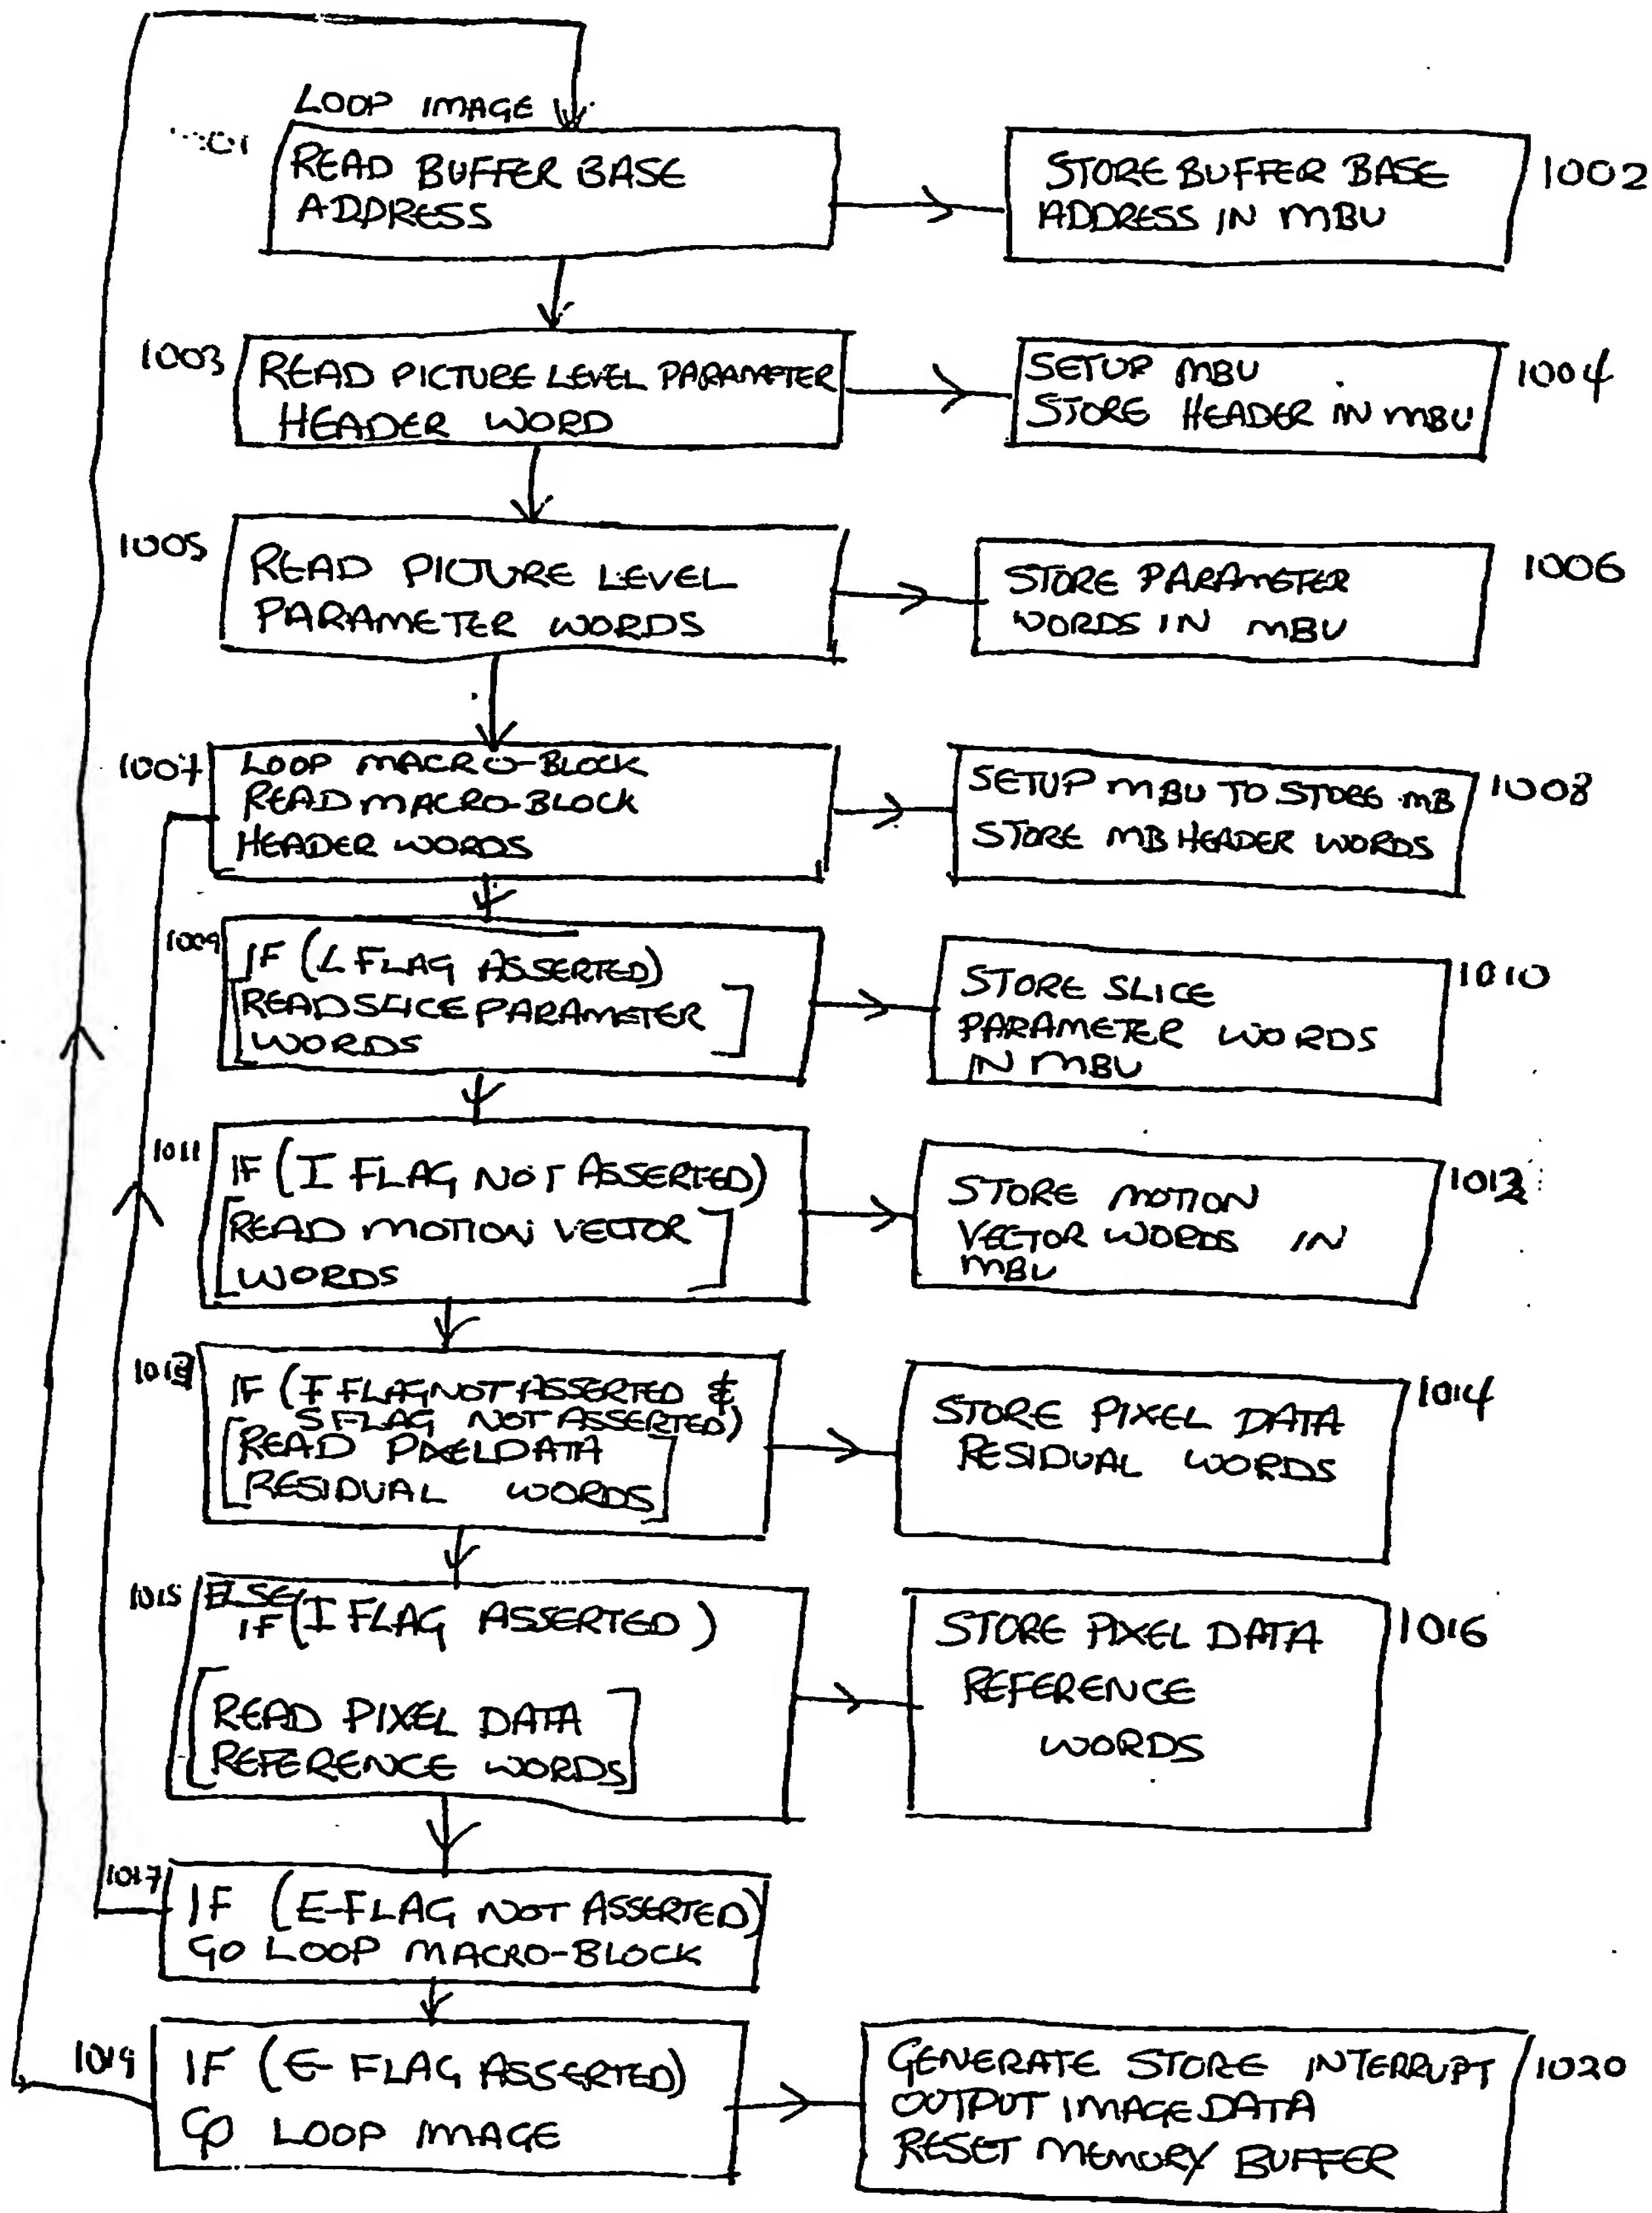 LOOP IMAGE
READ BUFFER BASE
ADDRESS
STORE BUFFER BASE
ADDRESS IN MBU
1002
1003
READ PICTURE LEVEL PARAMETER
HEADER WORD
SETUP MBU
STORE HEADER IN MBU
1004
1005
READ PICTURE LEVEL
PARAMETER WORDS
STORE PARAMETER
WORDS IN MBU
1006
1007
LOOP MACRO-BLOCK
READ MACRO-BLOCK
HEADER WORDS
SETUP MBU TO STORE MB
STORE MB HEADER WORDS
1008
1009
IF (L FLAG ASSERTED)
[READ SLICE PARAMETER
WORDS]
STORE SLICE
PARAMETER WORDS
IN MBU
1010
1011
IF (I FLAG NOT ASSERTED)
[READ MOTION VECTOR
WORDS]
STORE MOTION
VECTOR WORDS IN
MBU
1012
1013
IF (I FLAG NOT ASSERTED &
S FLAG NOT ASSERTED)
[READ PIXEL DATA
RESIDUAL WORDS]
STORE PIXEL DATA
RESIDUAL WORDS
1014
1015
ELSE
IF (I FLAG ASSERTED)
[READ PIXEL DATA
REFERENCE WORDS]
STORE PIXEL DATA
REFERENCE
WORDS
1016
1017
IF (E-FLAG NOT ASSERTED)
GO LOOP MACRO-BLOCK
1019
IF (E- FLAG ASSERTED)
GO LOOP IMAGE
GENERATE STORE INTERRUPT
OUTPUT IMAGE DATA
RESET MEMORY BUFFER
1020